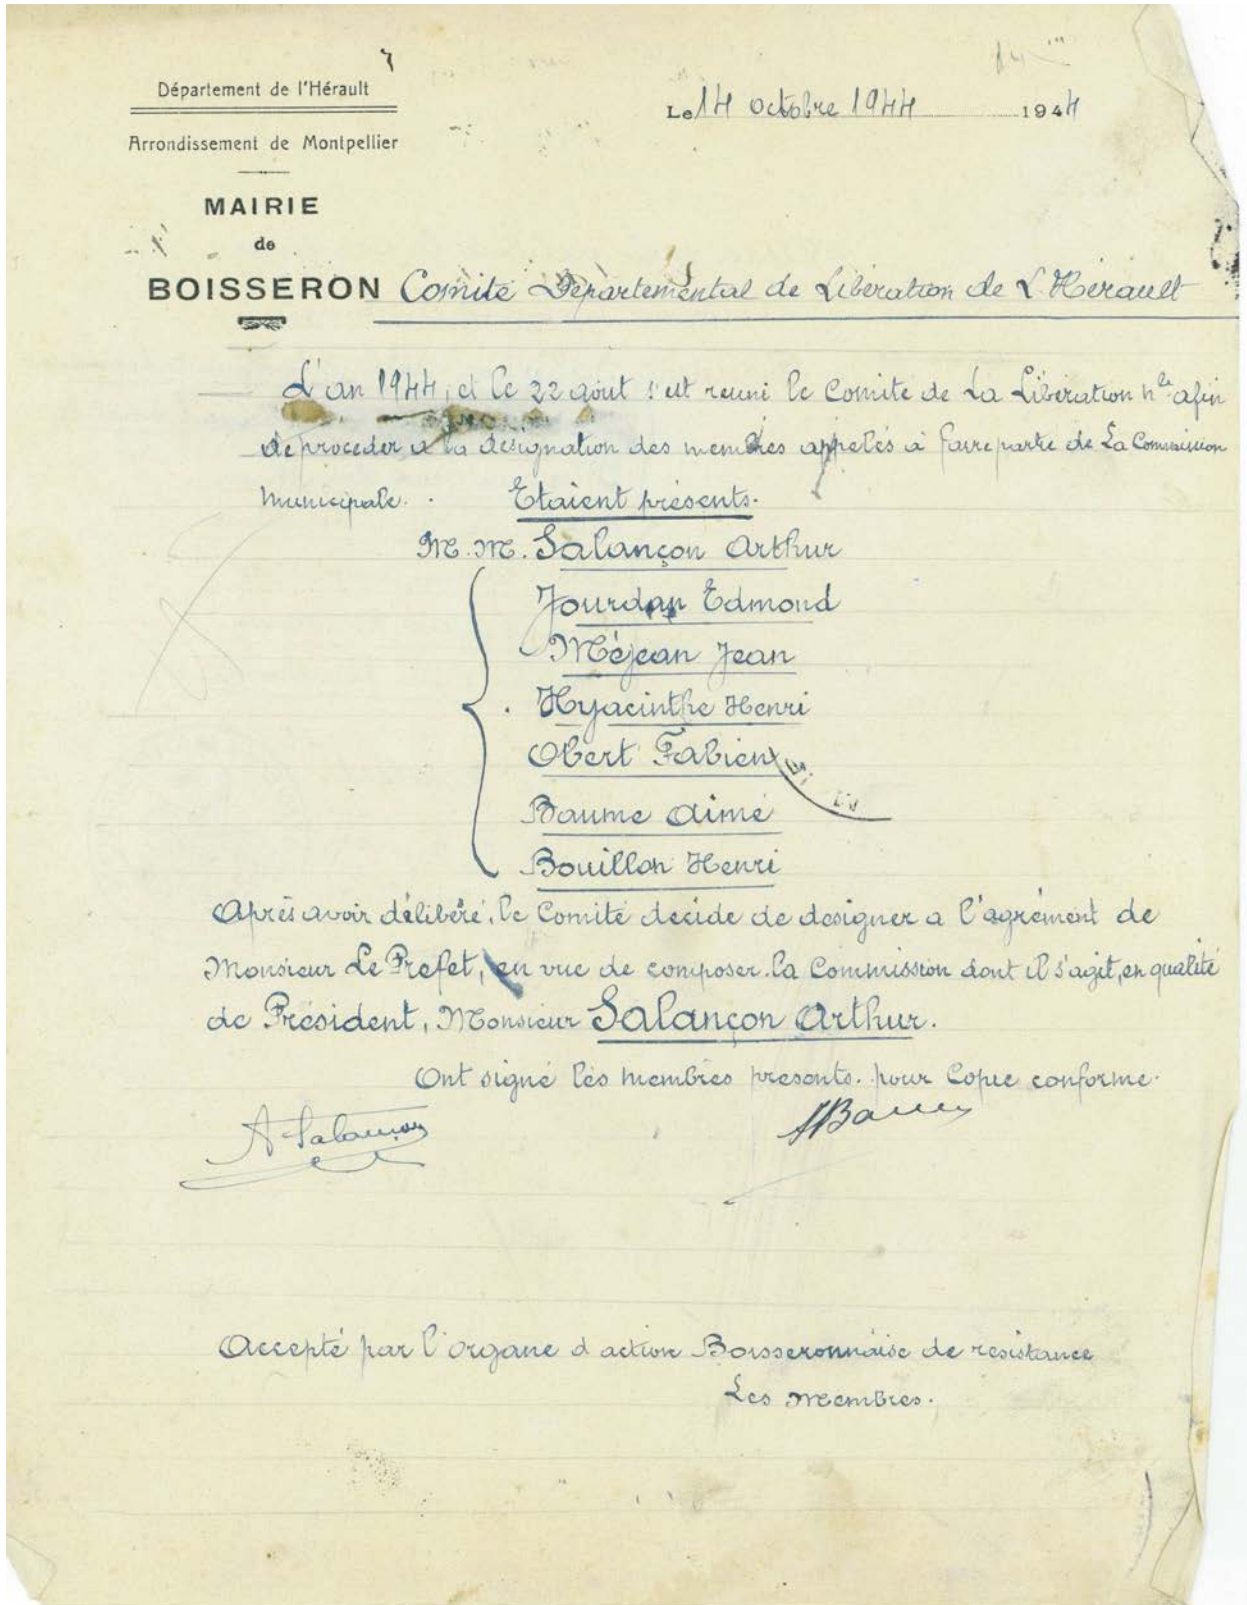 Département de l'Hérault
Le 14 octobre 1944 1944
Arrondissement de Montpellier
MAIRIE
de
BOISSERON Comité Départemental de Libération de L'Hérault
L'an 1944, et le 22 août s'est reuni le Comite de La Libération nle afin
de proceder a la designation des membres appelés à faire partie de La Commission
Municipale. Etaient présents.
M.M. Salançon Arthur
Jourdan Edmond
Méjean Jean
Hyacinthe Henri
Obert Fabien
Baume Aimé
Bouillon Henri
Après avoir délibéré, le Comité decide de designer a l'agrément de
Monsieur Le Prefet, en vue de composer la Commission dont il s'agit, en qualité
de Président, Monsieur Salançon Arthur.
Ont signé les membres presents. pour Copie conforme.
A Salançon
Accepté par l'organe d action Boisseronnaise de resistance
Les Membres.